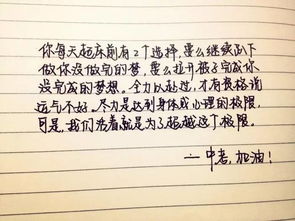 你每天起床前有2个选择，要么继续趴下
做你没做完的梦，要么拉开被子完成你
没完成的梦想。全力以赴过，才有资格说
运气不好。尽力是达到身体或心理的极限，
可是，我们活着就是为了超越这个极限。
——中考，加油！